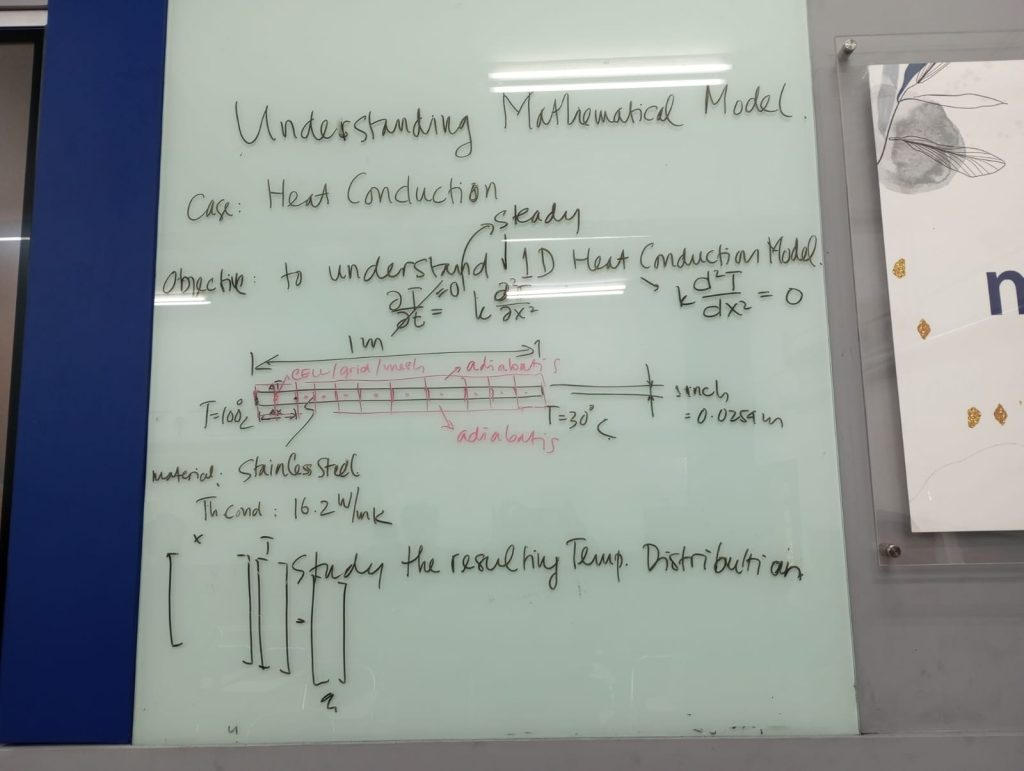 Understanding Mathematical Model.
Case: Heat Conduction
steady
Objective: to understand 1D Heat Conduction Model.
∂T/∂t = 0 = k ∂²T/∂x²
k d²T/dx² = 0
1 m
cell/grid/mesh
adiabatis
ΔT
Δx
T=100°C
T=30°C
1 inch
= 0.0254 m
adiabatis
Material: Stainless Steel
Th Cond: 16.2 W/mK
x
T
Study the resulting Temp. Distribution
=
n